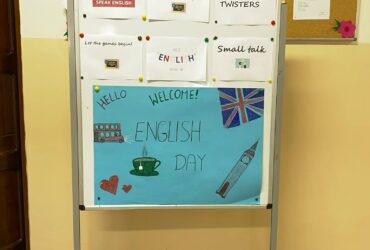 SPEAK ENGLISH
TWISTERS
Let the games begin!
ENGLISH
Small talk
HELLO
WELCOME!
ENGLISH
DAY